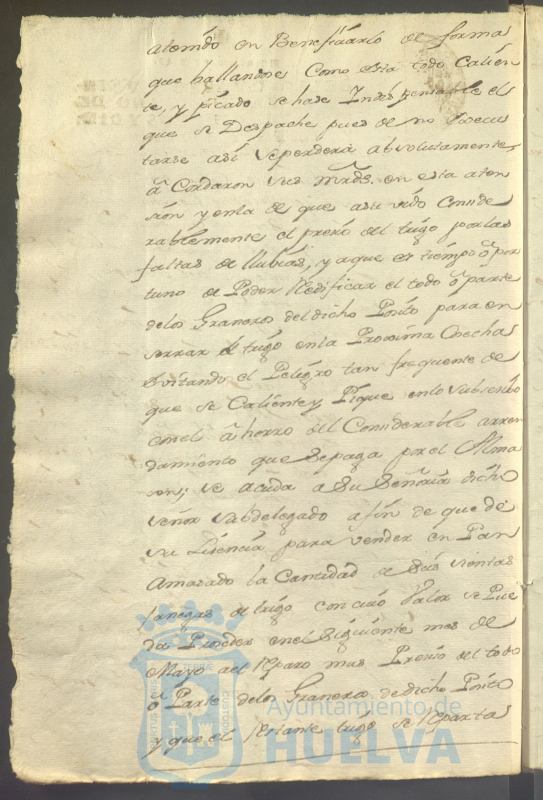 atendo en Beneficiarlo de forma
que hallandose Como esta todo Calien
te, y picado se hase Indispensable el
que se Despache pues de no execu
tarse asi se perderá absolutamente
acordaron sus mrds. en esta aten
sión y en la de que a subido Conside
rablemente el presio del trigo por las
faltas de llubias, y a que es tiempo opor
tuno de Poder Redificar el todo o parte
de los Graneros del dicho Posito para en
serrar el trigo en la Proxima Cosecha
evitando el Peligro tan frequente de
que se Caliente y Pique en lo Subsesibo
con el ahorro del Considerable arren
damiento que se paga por el Alma
sen; se acuda a Su Señoria dicho
señor subdelegado a fin de que de
su Lisencia para vender en Pan
Amasado la Cantidad de seis sientas
fanegas de trigo con cuio Valor se Pue
da Proseder en el Siguiente mes de
Mayo al Reparo mas Presiso del todo
o Parte de los Graneros de dicho Posito
y que el restante trigo se Reparta
Ayuntamiento de
HUELVA